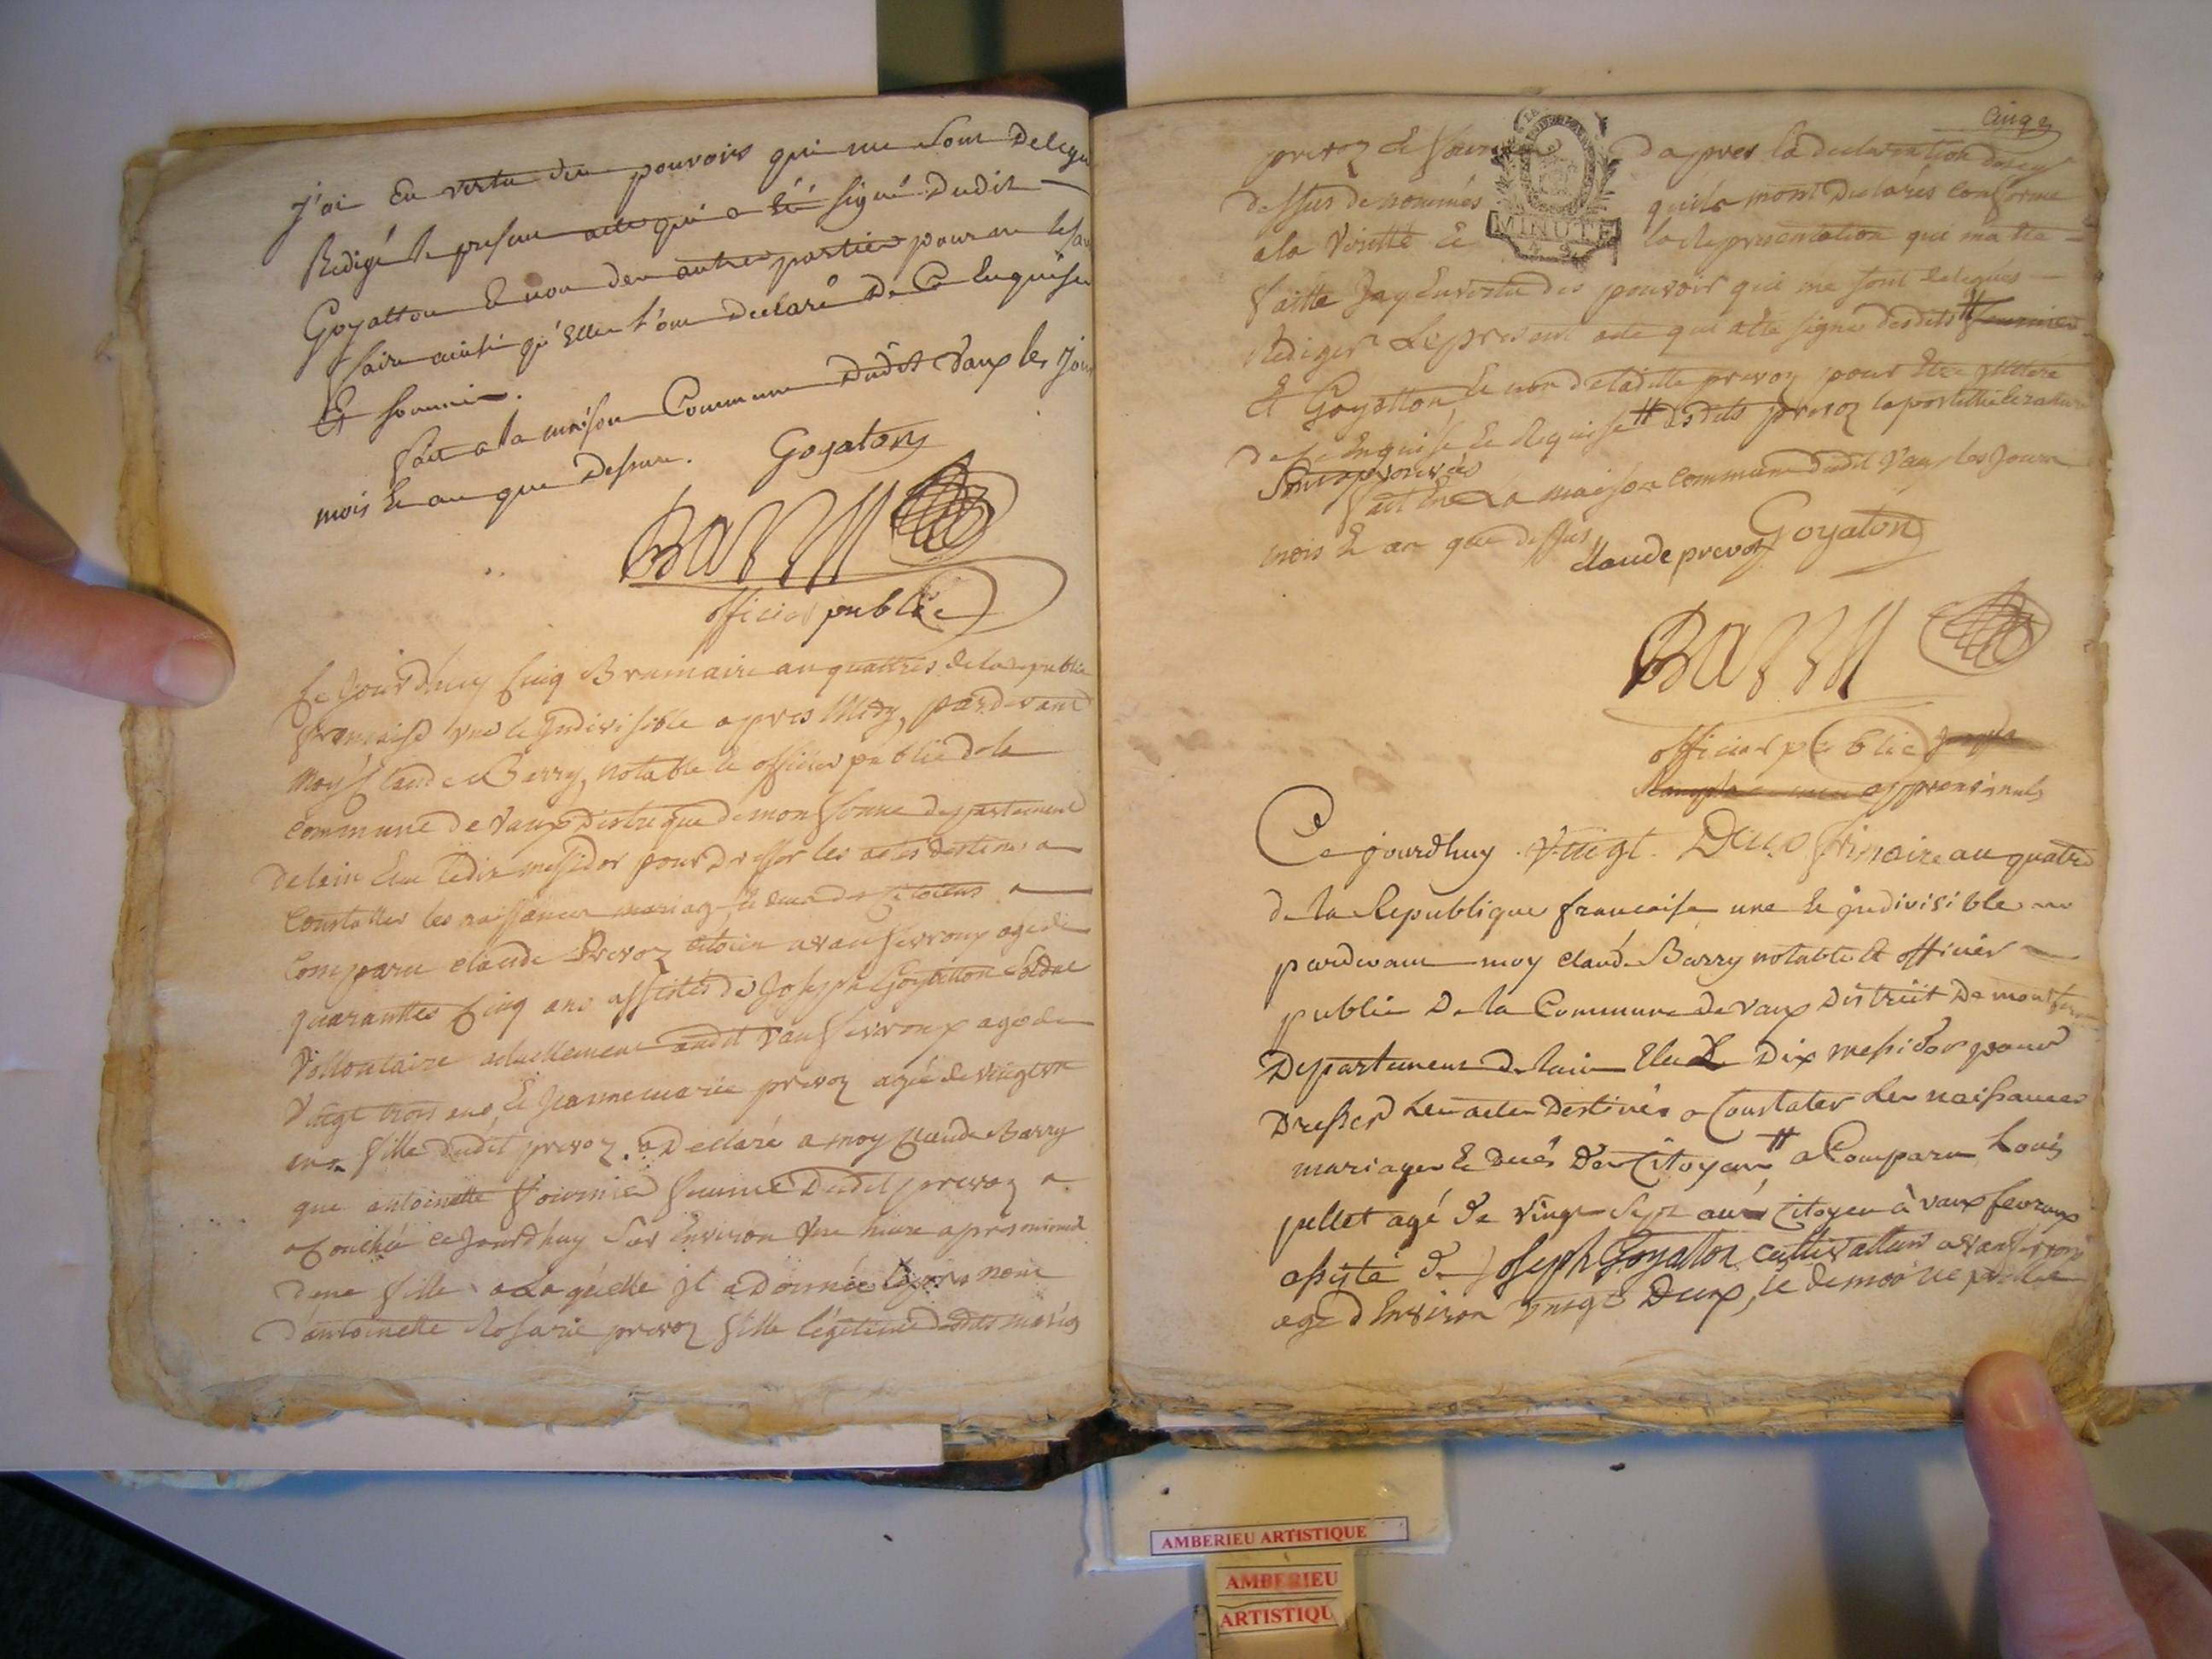 J'ai En vertu des pouvoirs qui me Sont Delegu
Redigé le present acte qui a été signé dudit
Goyatton & non des autres parties pour ne le sav
faire ainsi qu'Elles l'ont Declaré De Ce Enquises
Et Sommés.
fait a la maison Commune Dudit Vaux les Jour
mois & an que Dessus. Goyaton
Barry
officier public
Ce Jourdhuy Cinq Brumaire an quattres de la republi
francaise une & Indivisible apres Midy, pardevant
Moy Claude Barry, notable & officier public de la
commune de Vaux Districque de monfferme departement
de lain Elu le dix messidor pour Dresser les actes destines a
Constatter les naissances mariage & deces des Citoiens a
Comparu claude Prevoz citoien a vaux fevroux agé de
quaranttes Cinq ans assistés de Joseph Goyatton soldat
Vollontaire actuellement audit Vaux fevroux agé de
Vingt trois ans & Jeanne marie prevoz agée de vingt un
ans fille dudit prevoz. a Declaré a moy Claude Barry
que antoinette fournier femme Dudit prevoz a
accouchée ce Jourdhuy Sur Environ Une heure apres minuit
dune fille a Laquelle Il a Donnée les noms
dantoinette Rosarie prevoz fille légitime desdits mariés
cinq
prevoz & fournier Dapres la declaration
dessus denommés quils mont Declarés Conforme
a la Veritté & la Representation qui ma Eté
faitte Jay En vertu des pouvoir qui me sont delegués
Rediger Le present acte qui a été signé desdits # fournier
& Goyatton & non de ladite prevoz pour Etre illitéré
de ce Enquise & Requise # Lesdits prevoz
approuvés
fait En La maison commune dudit Vaux les Jours
mois & an que dessus. claude prevoz Goyaton
Barry
officier public
approuvé nuls
Ce jourdhuy Vingt Deux frimaire an quatre
de la Republique francaise une & jndivisible
pardevant moy claude Barry notable & officier
public De la Commune de Vaux District De montfer
Departement de lain Elu Le Dix messidor pour
Dresser Les actes Destinés a Constater Les naissances
mariages & decés Des Citoyens # a Comparu Louis
pellet agé de Vingt Sept ans Citoyen à Vaux fevroux
assisté de Joseph Goyatton cultivatteur a vaux fevroux
agé d'Environ Vingt Deux, & de
MINUTE
AMBERIEU ARTISTIQUE
AMBERIEU
ARTISTIQU